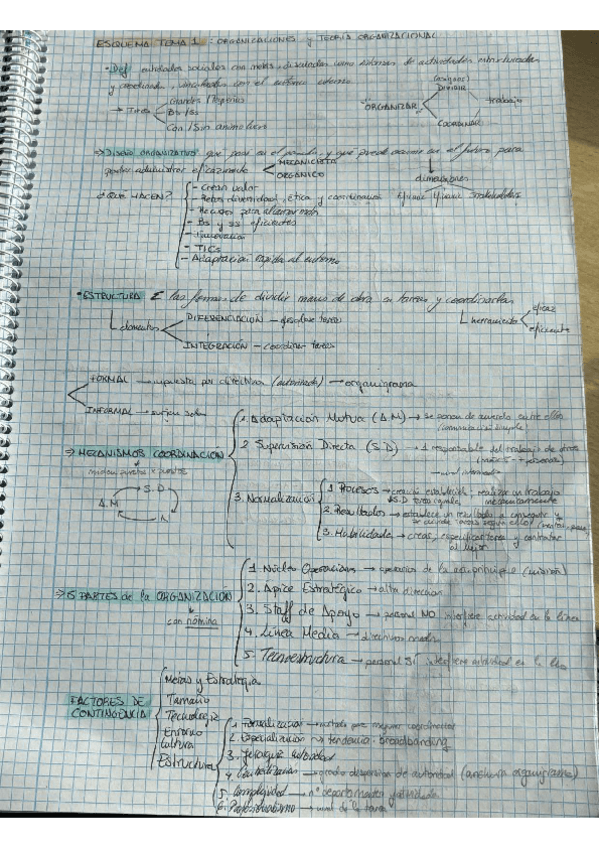 ESQUEMA TEMA 1 : ORGANIZACIONES y TEORÍA ORGANIZACIONAL
• Def entidades sociales con metas, diseñadas como sistemas de actividades estructuradas
y coordinadas, vinculadas con el entorno externo
→ Tipos Grandes / Pequeños
Bs / Ss
Con / Sin ánimo lucro
ORGANIZAR (asignar) Dividir trabajo
Coordinar
⇒ DISEÑO ORGANIZATIVO qué pasó en el pasado, y qué puede ocurrir en el futuro para
poder administrar eficazmente MECANICISTA
ORGÁNICO
dimensiones
stakeholders
¿QUÉ HACEN? - Crean valor
- Retos diversidad, ética y coordinación
- Recursos para alcanzar metas
- Bs y ss eficientes
- Innovación
- TICs
- Adaptación rápida al entorno
• ESTRUCTURA Σ las formas de dividir mano de obra en tareas y coordinarlas
elementos DIFERENCIACIÓN
INTEGRACIÓN — coordinar tareas
herramienta eficaz
eficiente
FORMAL — impuesta por directivos (autoridad) → organigrama
INFORMAL — surjen solas
⇒ MECANISMOS COORDINACIÓN
1. Adaptación Mutua (A.M) → se ponen de acuerdo entre ellos
(comunicación simple)
2. Supervisión Directa (S.D) → 1 responsable del trabajo de otros
3. Normalización
1. Procesos
2. Resultados
3. Habilidades → crear, especificar tarea y contratar
al mejor
S.D
A.M
N
⇒ 5 PARTES de la ORGANIZACIÓN
con nómina
1. Núcleo Operaciones → operarios de la act. principal (misión)
2. Ápice Estratégico → alta dirección
3. Staff de Apoyo → personal NO interfiere actividad en la línea
4. Línea Media → directivos medios
5. Tecnoestructura → personal SÍ interfiere actividad en la línea
FACTORES DE
CONTINGENCIA
Metas y Estrategia
Tamaño
Tecnología
Entorno
Cultura
Estructura
1. Formalización → métodos por mejorar coordinación
2. Especialización → tendencia - broadbanding
3. Jerarquía Autoridad
4. Centralización → grado dispersión de autoridad (anchura organigrama)
5. Complejidad → nº departamentos y actividades
6. Profesionalismo → nivel de la tarea